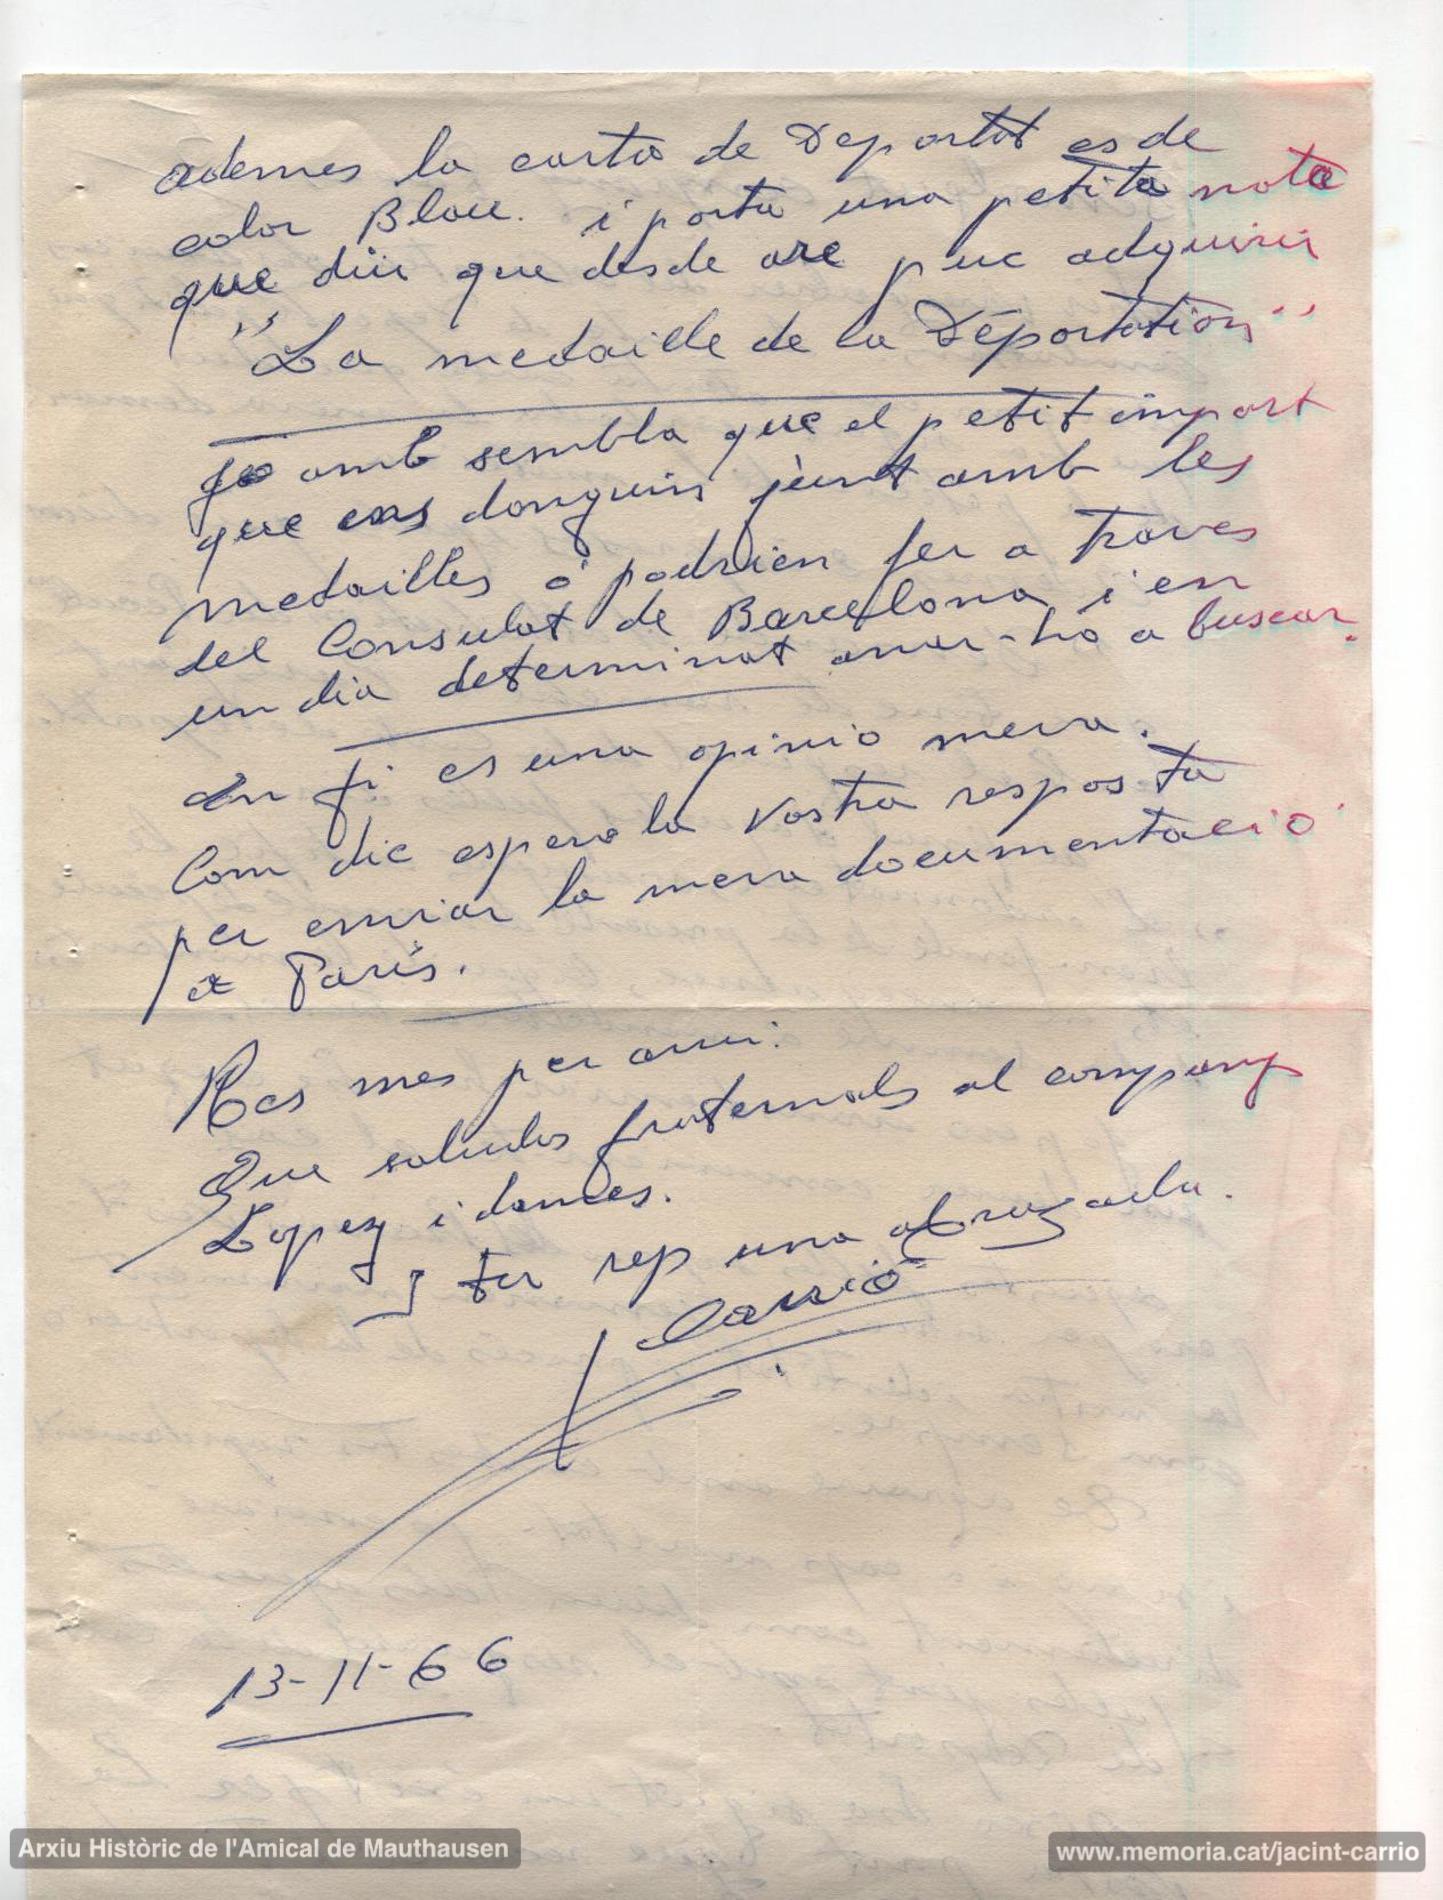 ademes la carta de Deportat es de
color Blau. i porta una petita nota
que diu que desde are puc adquirir
"La medaille de la Déportation"
Jo amb sembla que el petit import
que ens donguin junt amb les
medailles o podrien fer a traves
del Consulat de Barcelona i en
un dia determinat anar-ho a buscar.
En fi es una opinio meva.
Com dic espero la Vostra resposta
per enviar la meva documentacio
a Paris.
Res mes per avui.
Que saludos fraternals al company
Lopez i demes.
I tu rep una abrazada.
Carrió
13-11-66
Arxiu Històric de l'Amical de Mauthausen
www.memoria.cat/jacint-carrio